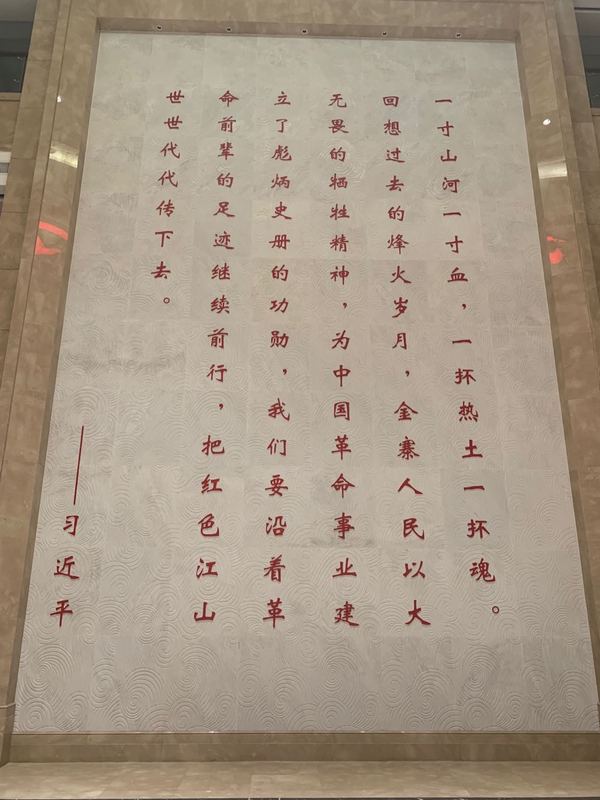 一寸山河一寸血，一抔热土一抔魂。
回想过去的烽火岁月，金寨人民以大
无畏的牺牲精神，为中国革命事业建
立了彪炳史册的功勋，我们要沿着革
命前辈的足迹继续前行，把红色江山
世世代代传下去。
——习近平